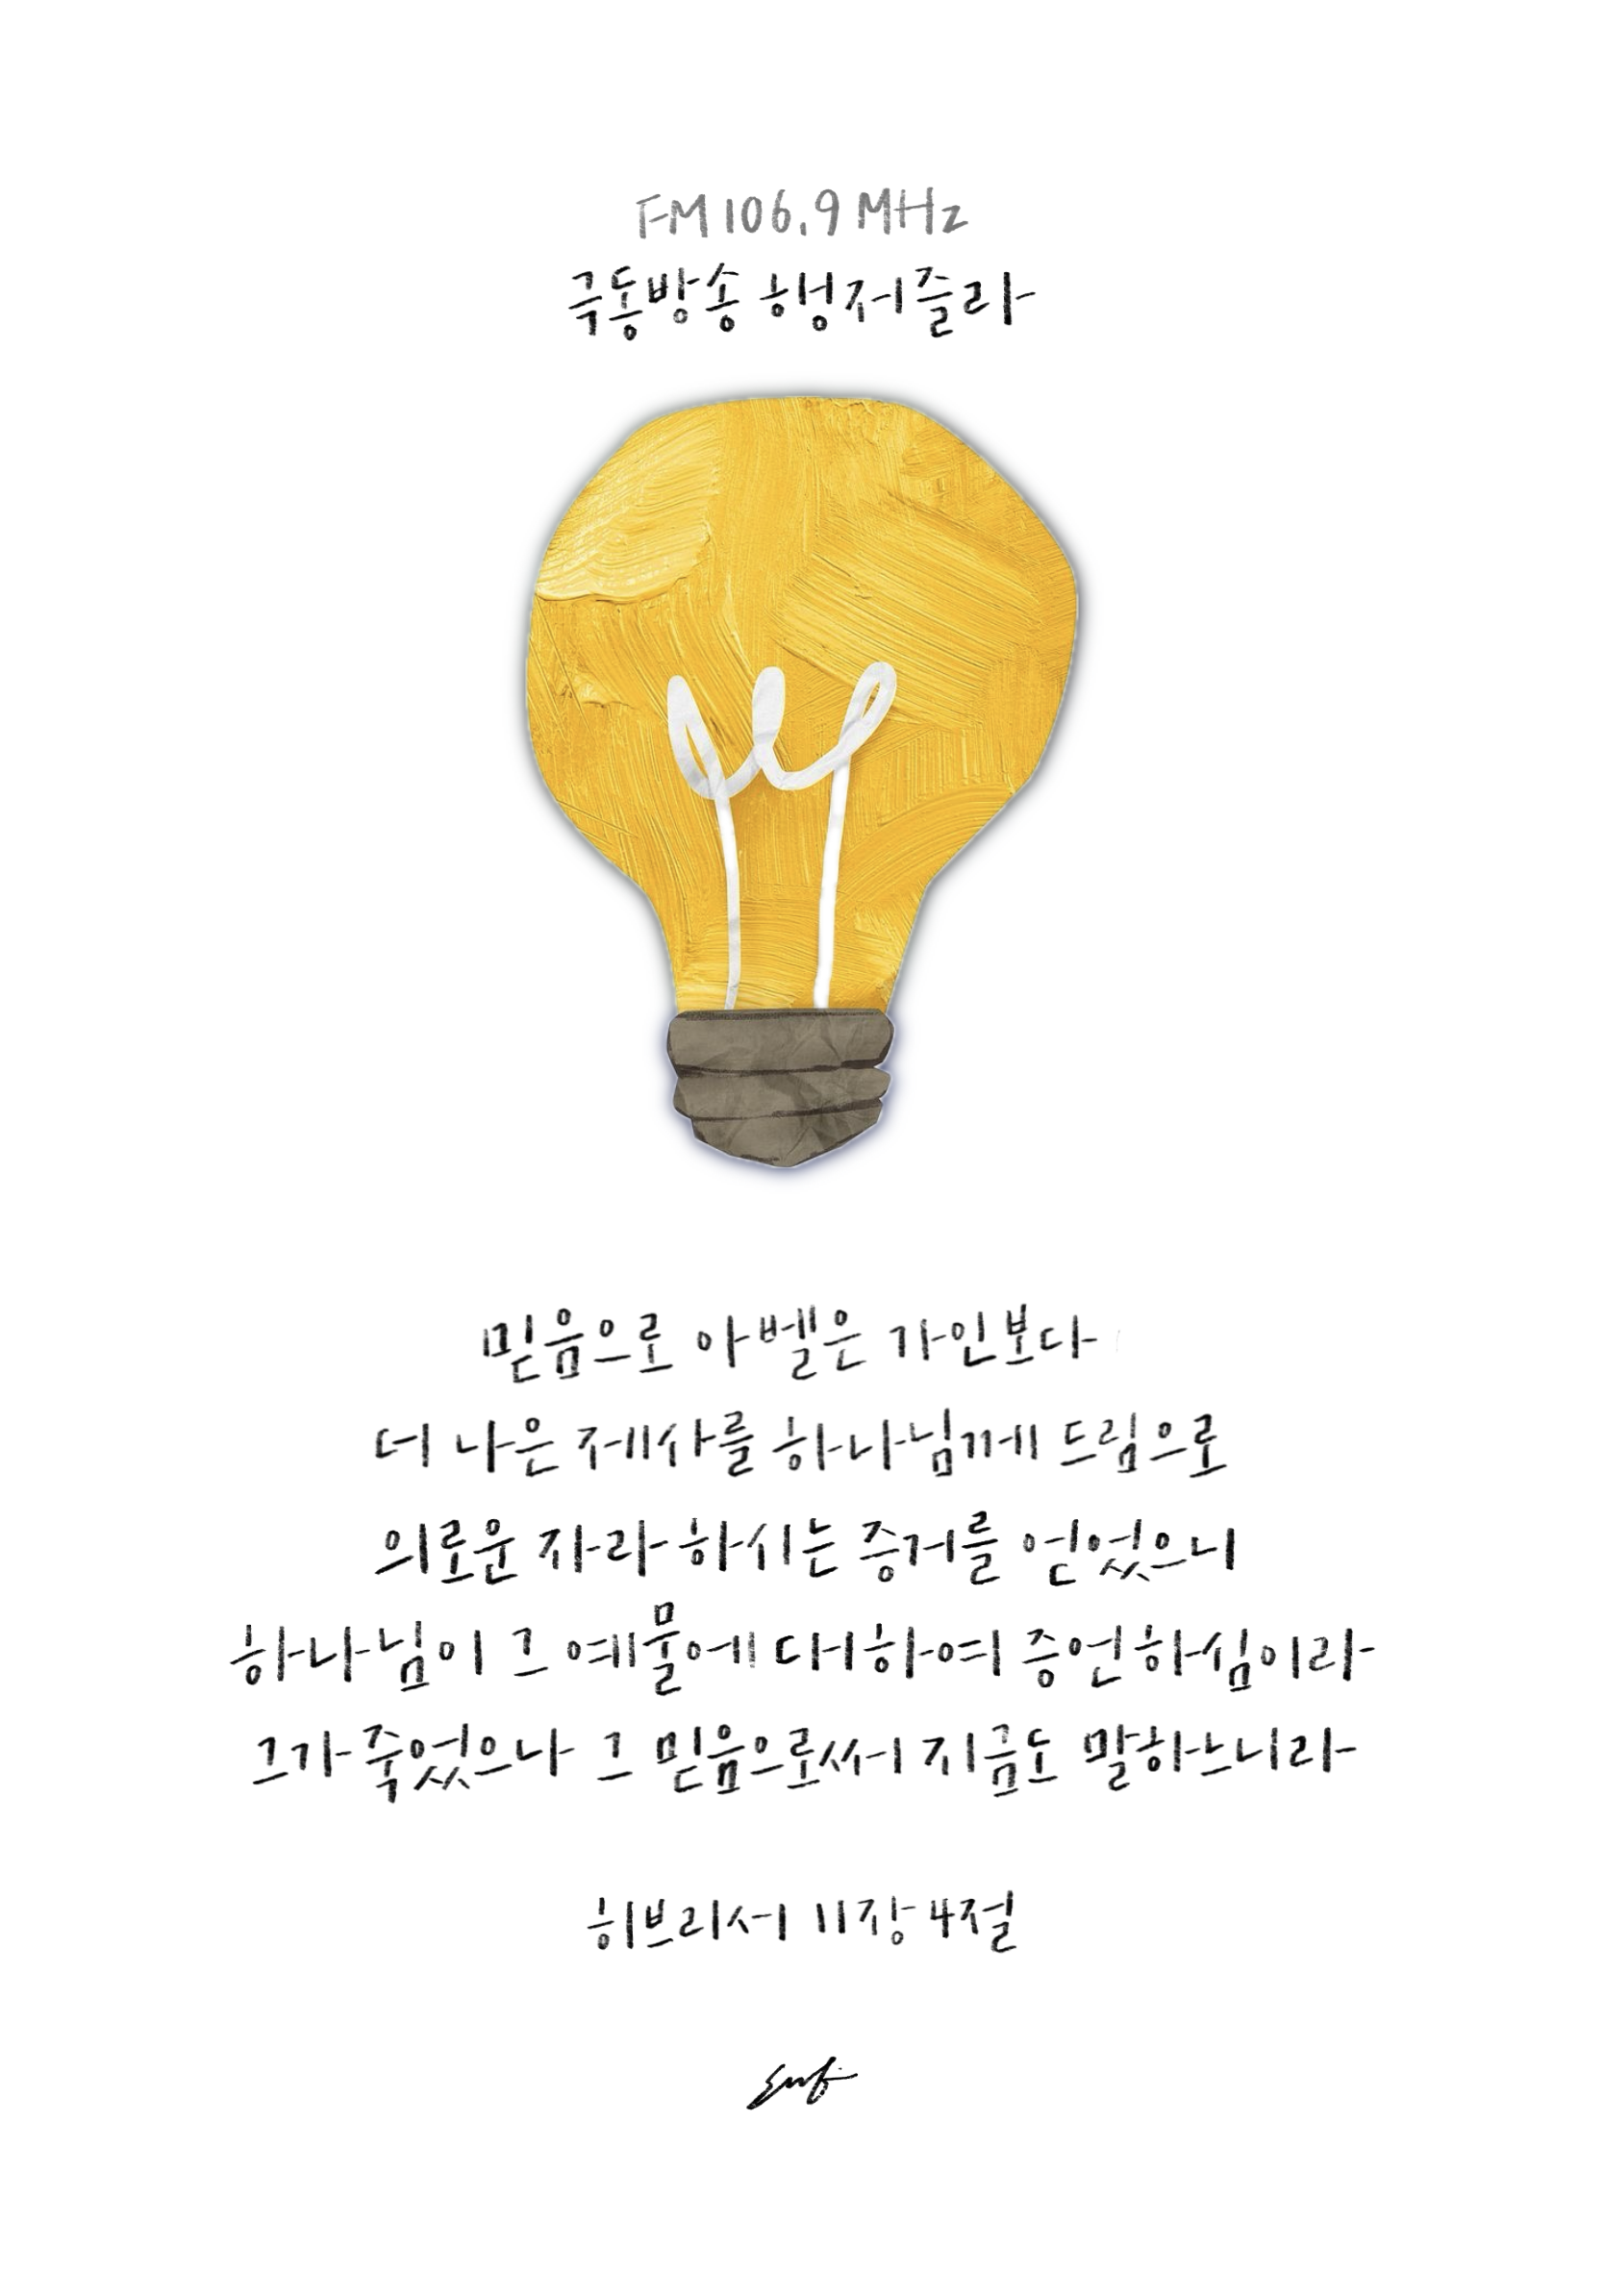 FM 106.9 MHz
극동방송 행저즐라
믿음으로 아벨은 가인보다
더 나은 제사를 하나님께 드림으로
의로운 자라 하시는 증거를 얻었으니
하나님이 그 예물에 대하여 증언하심이라
그가 죽었으나 그 믿음으로써 지금도 말하느니라
히브리서 11장 4절